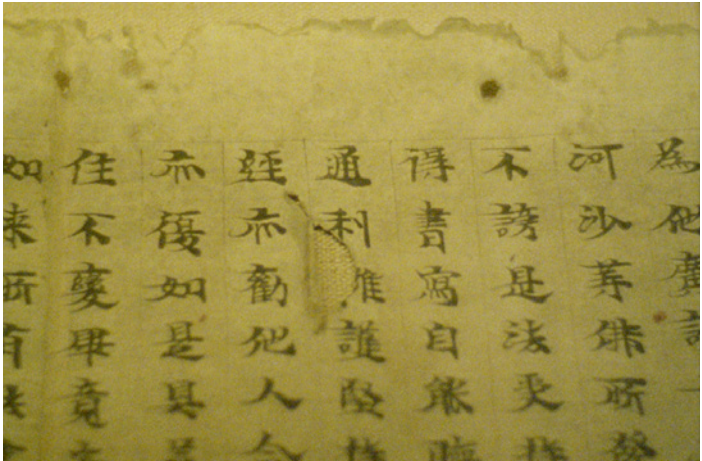 為他廣説一
河沙等佛所發
不謗是法受持
得書寫自能聽
通利護堅持
經亦勸他人令
亦復如是具
住不變畢竟安
如来所有